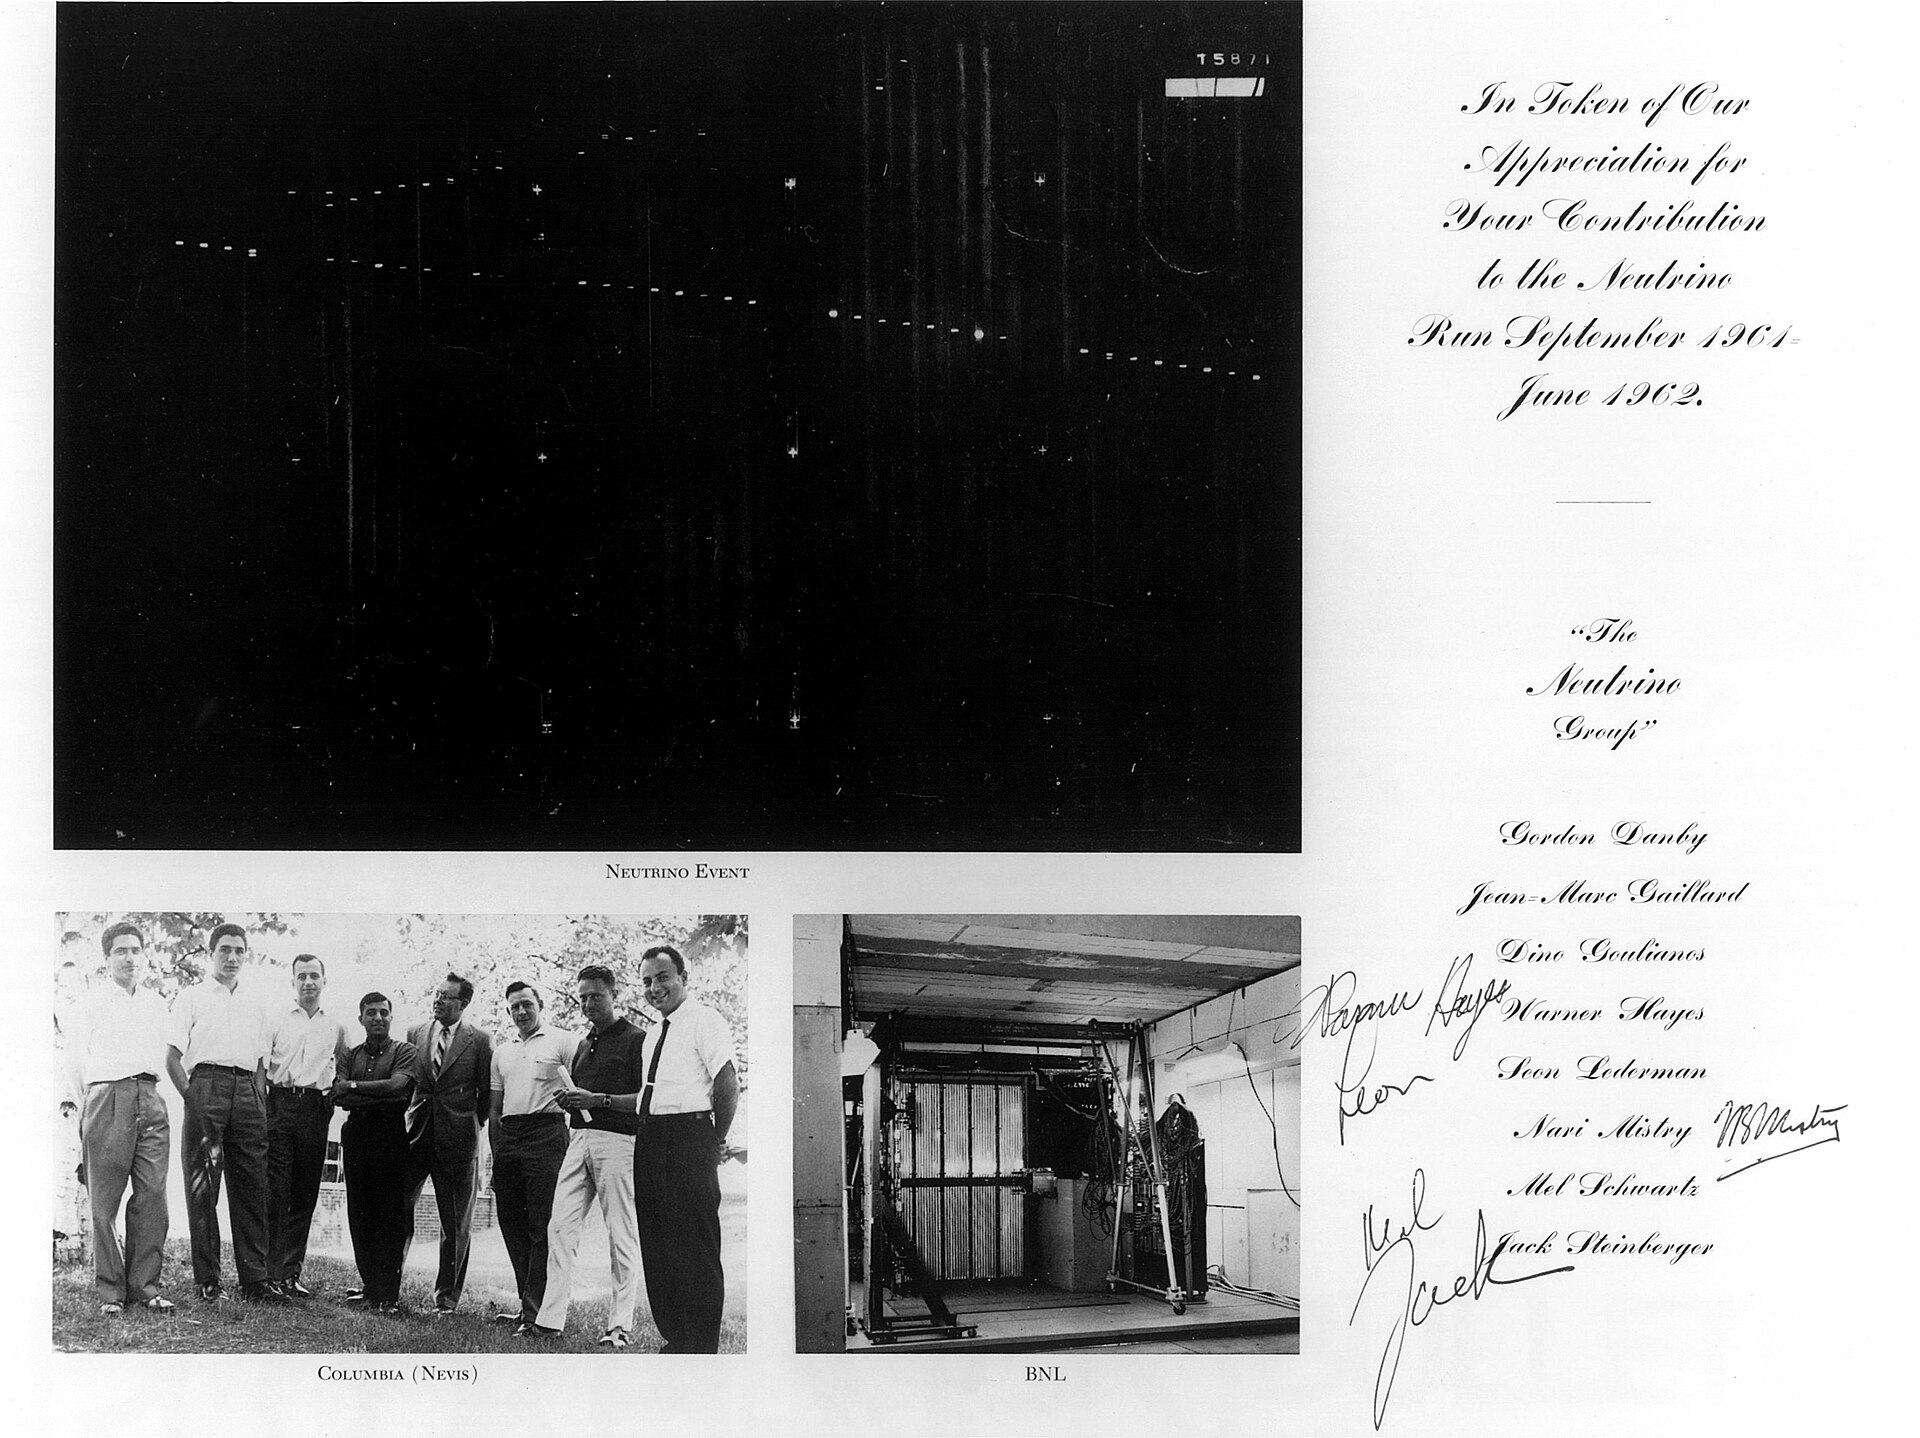 15871
In Token of Our
Appreciation for
Your Contribution
to the Neutrino
Run September 1961-
June 1962.
“The
Neutrino
Group”
Gordon Danby
Jean-Marc Gaillard
Dino Goulianos
Warner Hayes
Warner Hayes
Leon Lederman
Leon
Nari Mistry
NBMistry
Mel Schwartz
Mel
Jack Steinberger
Jack
Neutrino Event
Columbia (Nevis)
BNL